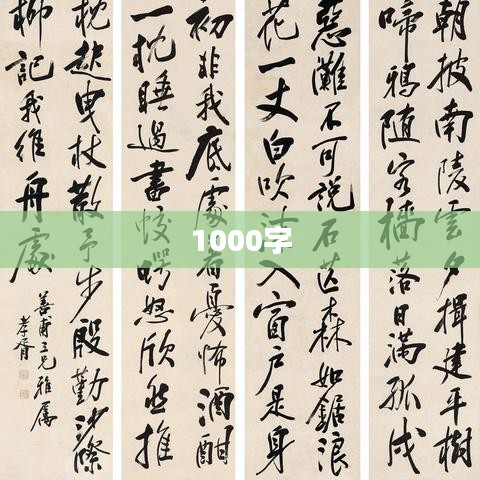 朝披南陵雲夕揖建平樹
啼鴉隨客檣落日滿孤戍
惡灘不可說石芒森如鋸浪
花一丈白吹沫入窗戶是身
初非我底處著憂怖酒酣
一枕睡過盡蛟鱷怒欣然推
枕起曳杖散予步殷勤沙際
柳記我維舟處
善甫三兄雅屬
孝胥
1000字